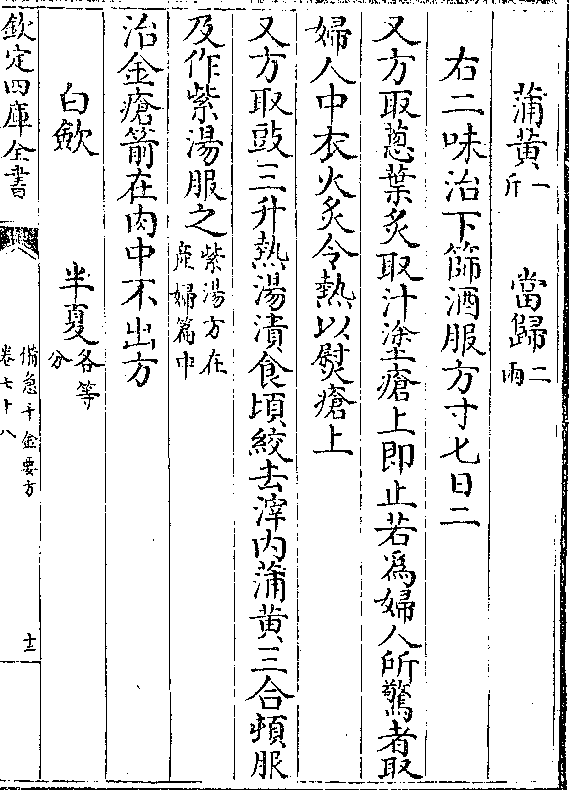 蒲黄一斤　當歸二兩
右二味治下篩酒服方寸七日二
又方取葱葉炙取汁塗瘡上即止若為婦人所驚者取
婦人中衣火炙令熱以熨瘡上
又方取豉三升熱湯漬食頃絞去滓内蒲黄三合頓服
及作紫湯服之紫湯方在産婦篇中
治金瘡箭在肉中不出方
白歛　半夏各等分
欽定四庫全書
備急千金要方
卷七十八
十二